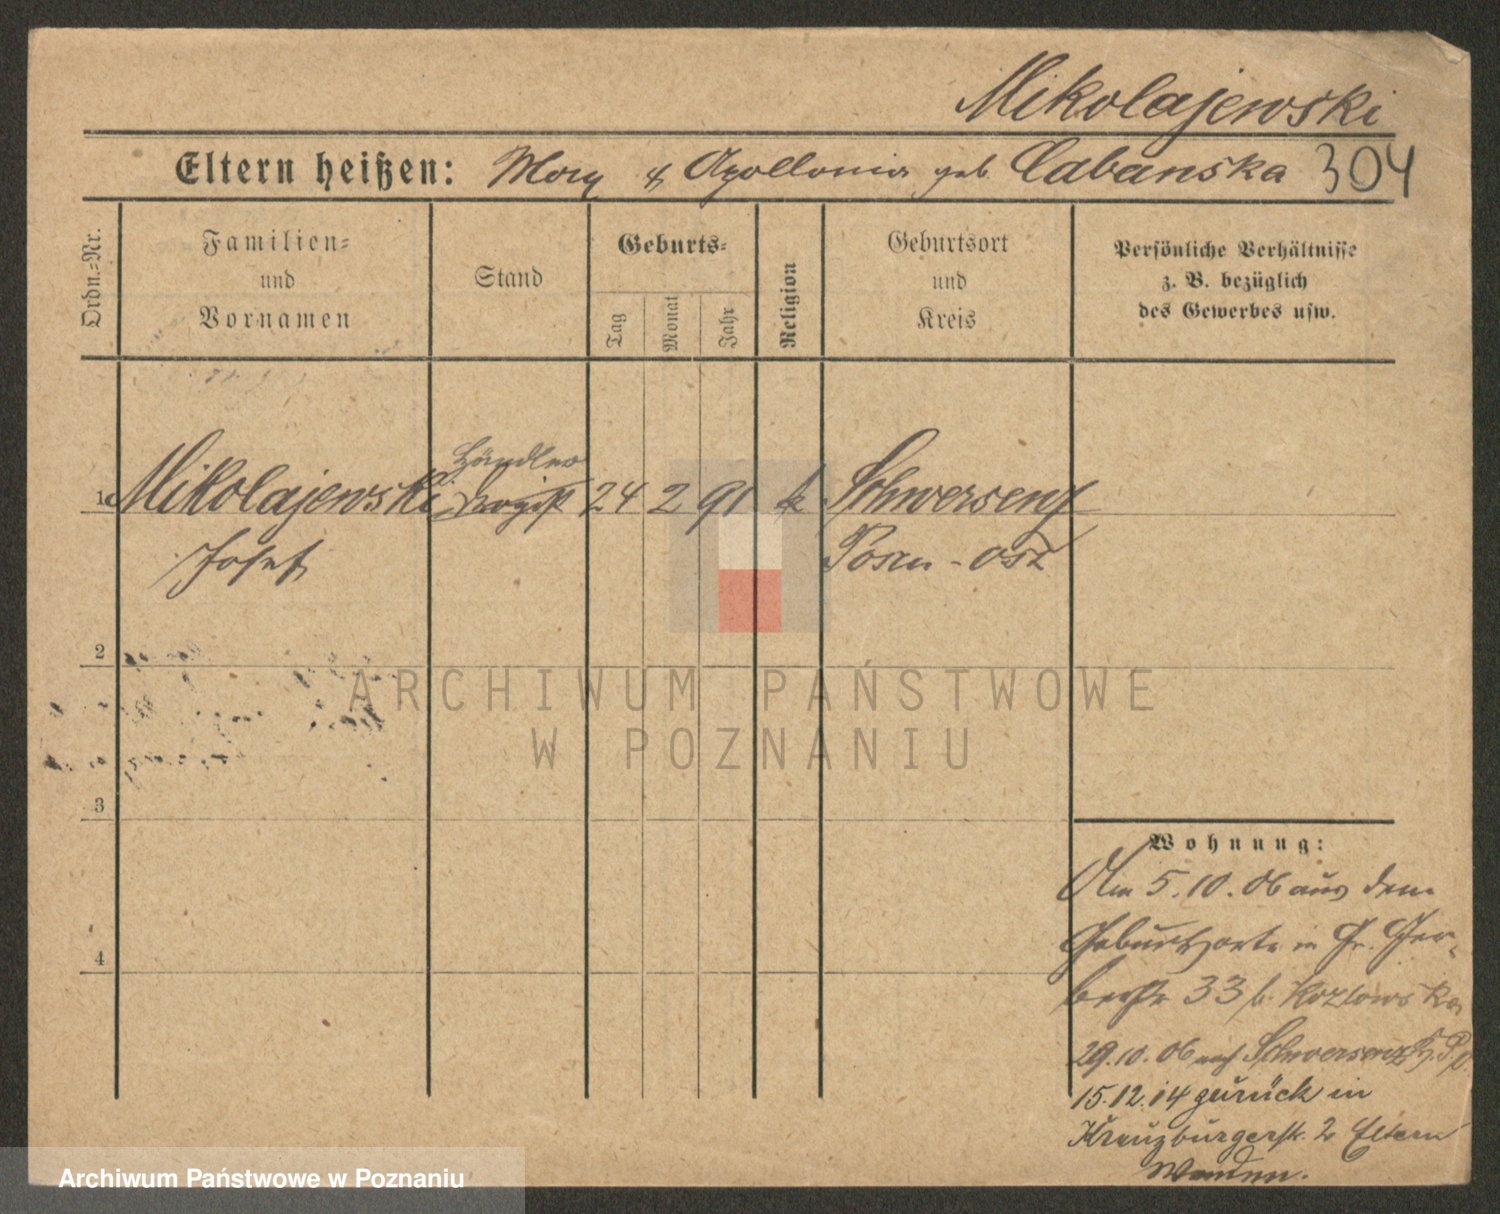 Mikolajewski
Eltern heißen: & Apollonia geb Cabanska 304
Ordn.-Nr.
Familien-
und
Vornamen
Stand
Geburts-
Tag
Monat
Jahr
Religion
Geburtsort
und
Kreis
Persönliche Verhältnisse
z. B. bezüglich
des Gewerbes usw.
Händler
1 Mikolajewski Drogist 24 2 91 k Schwersenz
Josef Posen - ost
2
3
4
Wohnung:
Am 5.10.06 aus dem
Geburtsorte in Gr. Ger-
berstr 33 b. Kozlowska
29.10.06 nach Schwersenz
15.12.14 zurück in
Kreuzburgerstr. 2 Eltern
ARCHIWUM PAŃSTWOWE
W POZNANIU
Archiwum Państwowe w Poznaniu